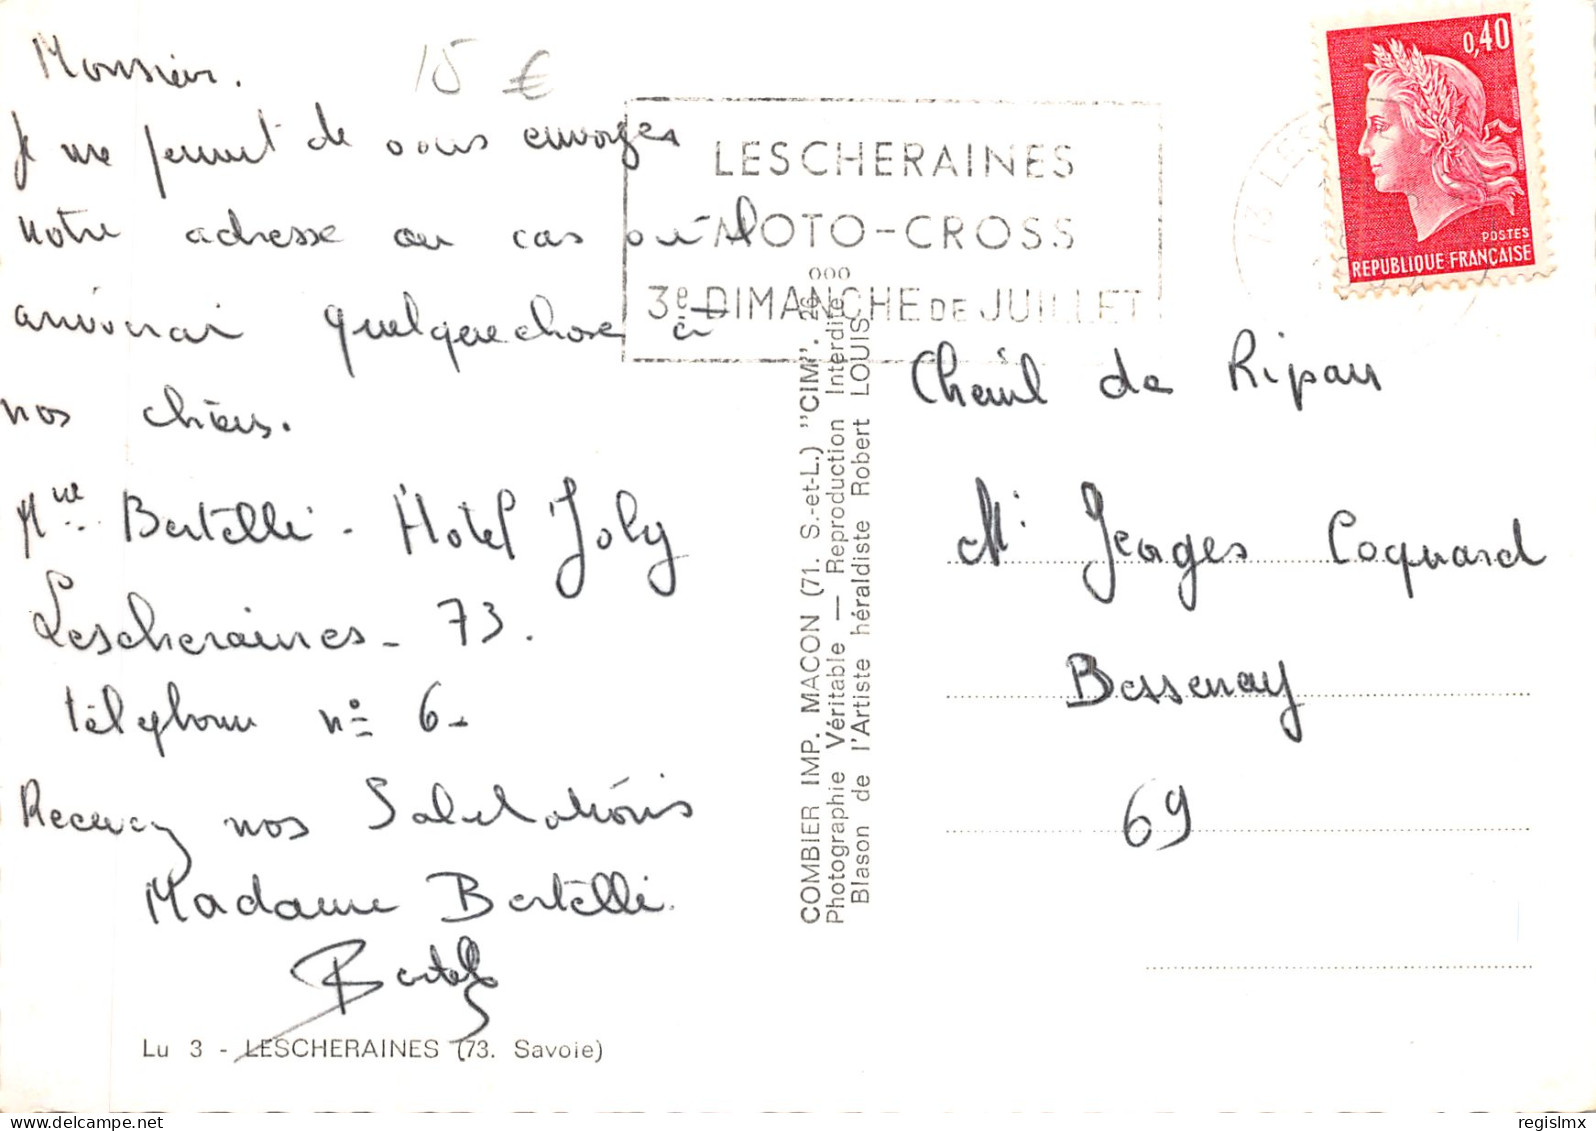 Monsieur.
15 €
Je me permet de vous envoyer
notre adresse au cas où il
arriverai quelque chose à
nos chiens.
Mme Bertelli - Hotel Joly
Lescheraines - 73.
téléphone n° 6 -
Recevez nos Salutations
Madame Bertelli.
Bertelli
Lu 3 - LESCHERAINES (73. Savoie)
LESCHERAINES
MOTO-CROSS
3e DIMANCHE DE JUILLET
COMBIER IMP. MACON (71. S.-et-L.) "CIM".
Photographie Véritable — Reproduction Interdite
Blason de l'Artiste héraldiste Robert LOUIS
0,40
POSTES
REPUBLIQUE FRANÇAISE
Chenil de Ripan
Mr Georges Coquard
Bessenay
69
delcampe.net
regislmx